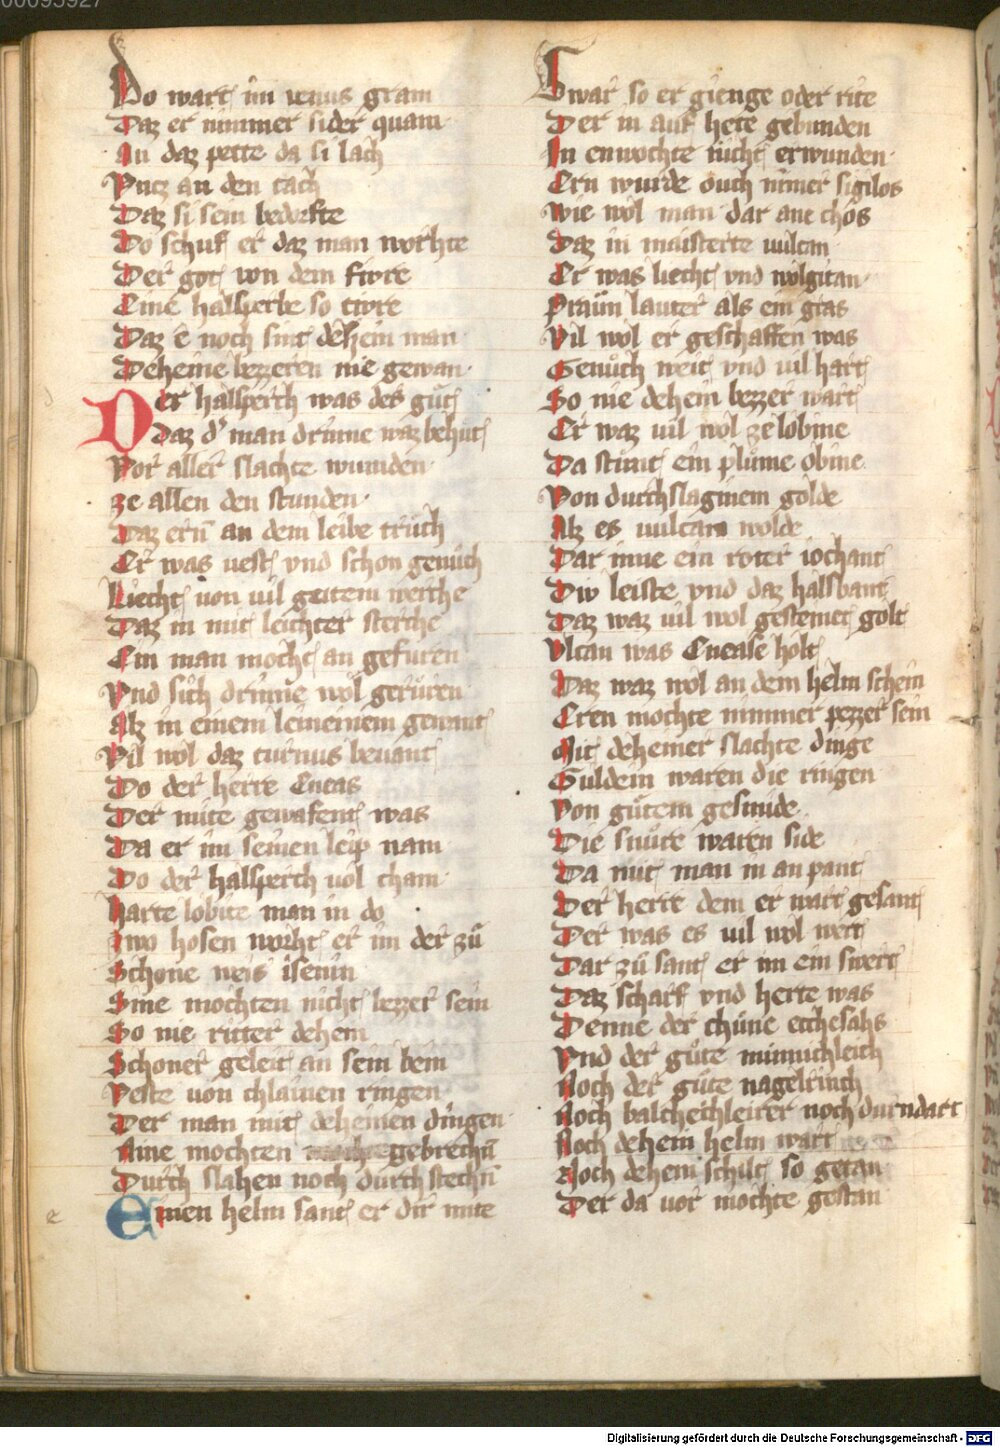 00095927
Do wart im venus gram
Daz er nimmer sider quam
An daz pette da si lach
Vntz an den tach
Daz si sein bedorfte
Do schuf er daz man worhte
Der got von dem fiwre
Eine halsperbe so tiwre
Daz e noch sint dehein man
Deheine bezzeren nie gewan
Der halsperch was des gůt
Daz d' man drinne waz behůt
Vor aller slachte wunden
ze allen den stunden
Daz ern an dem leibe trůch
Er was vest vnd schon genůch
Liecht von vil gutem werche
Daz in mit leichter sterche
Ein man mocht an gefuren
Vnd sich drinne wol gerůren
Alz in einem leineinem gewant
Vil wol daz turnus bevant
Do der herre Eneas
Der mite gewafent was
Da er im seinen leip nam
Do der halsperch vol cham
harte lobite man in do
zwo hosen worht er im der zů
Schone weis isenin
Sine mochten nicht bezzer sein
So nie ritter dehein
Schoner geleit an sein bein
Veste von chlainen ringen
Der man mit deheinen dingen
Nine mochten gebrechn
Durch slahen noch durch stechn
e
Einen helm sant er dir mite
Swar so er gienge oder rite
Der in auf hete gebunden
In enmochte nicht erwunden
Ern wurde ouch nimer sigilos
Wie wol man dar ane chos
Daz in maisterte uulcan
Er was liecht vnd wolgitan
Praun lauter als ein glas
Vil wol er geschaffen was
Genůch weit vnd vil hart
So nie dehein bezzer wart
Er waz vil wol ze lobine
Da stůnt ein plůme obine
Von durchslaginem golde
Alz es uulcan wolde
Dar inne ein roter iochant
Diw leiste vnd daz halsbant
Daz waz vil wol gesteinet golt
Vlcan was Enease holt
Daz waz wol an dem helm schein
Eren mochte nimmer pezzer sein
Mit deheiner slachte dinge
Guldein waren die ringen
Von gůtem gesmide
Die snůre waren side
Da mit man in an pant
Der herre dem er wart gesant
Der was es vil wol wert
Dar zů sant er im ein swert
Daz scharf vnd herte was
Denne der chůne ecchesahs
Vnd der gůte mimmichleich
Noch der gůte nagelrinch
Noch haltheichleirer noch durndart
Noch dehein helm wart
Noch dehein schilt so getan
Der da vor mochte gestan
Digitalisierung gefördert durch die Deutsche Forschungsgemeinschaft - DFG